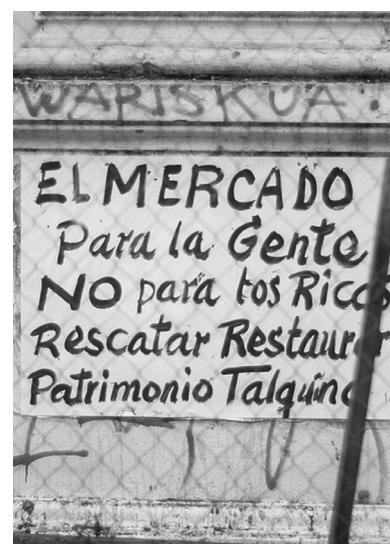 WARISKUA
EL MERCADO
Para la Gente
NO para los Ricos
Rescatar Restaurar
Patrimonio Talquino